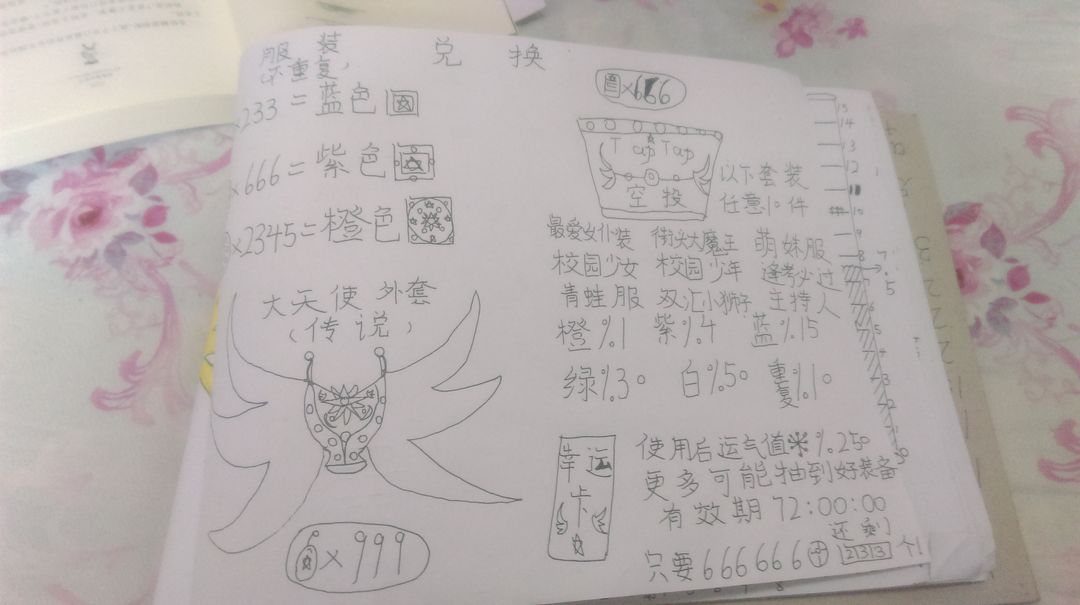 服装
(不重复)
兑换
×233=蓝色
×666=紫色
×2345=橙色
大天使外套
(传说)
×999
×666
Tap Tap
空投
以下套装
任意10件
最爱女仆装 街头大魔王 萌妹服
校园少女 校园少年 逢考必过
青蛙服 双汇小狮子 主持人
橙%1 紫%4 蓝%15
绿%30 白%50 重复%10
幸运卡
使用后运气值※%250
更多可能抽到好装备
有效期72:00:00
只要666666
还剩
21313个!
15
14
13
12
11
10
9
8
7.5